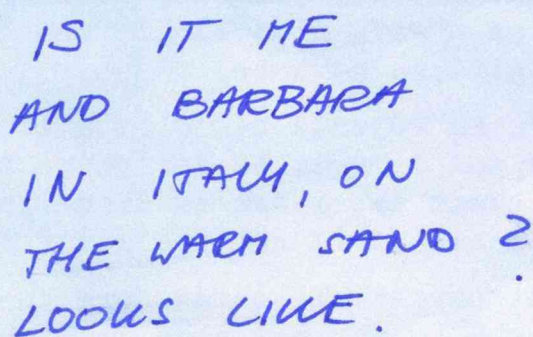 IS IT ME
AND BARBARA
IN ITALY, ON
THE WARM SAND ?
LOOKS LIKE.